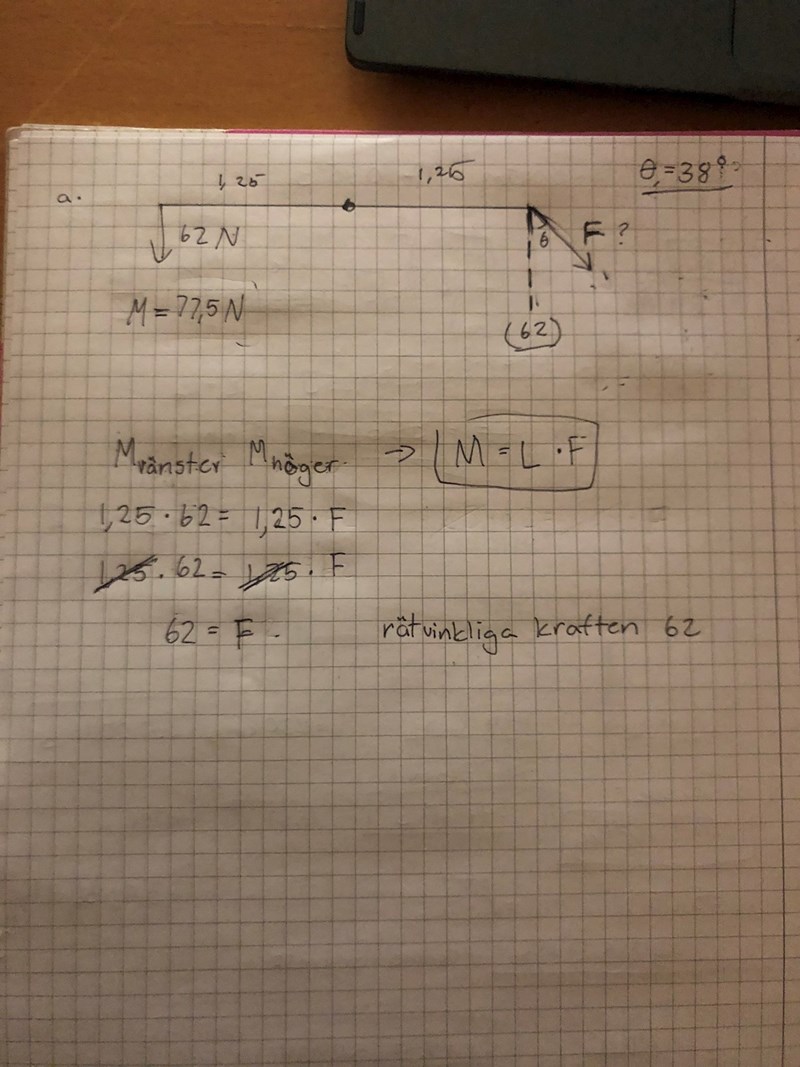 1,25 1,25 θ,=38°?
a.
62 N θ F ?
M = 77,5 N
(62)
Mvänster Mhöger → M = L · F
1,25 · 62 = 1,25 · F
1,25 · 62 = 1,25 · F
62 = F . rätvinkliga kraften 62